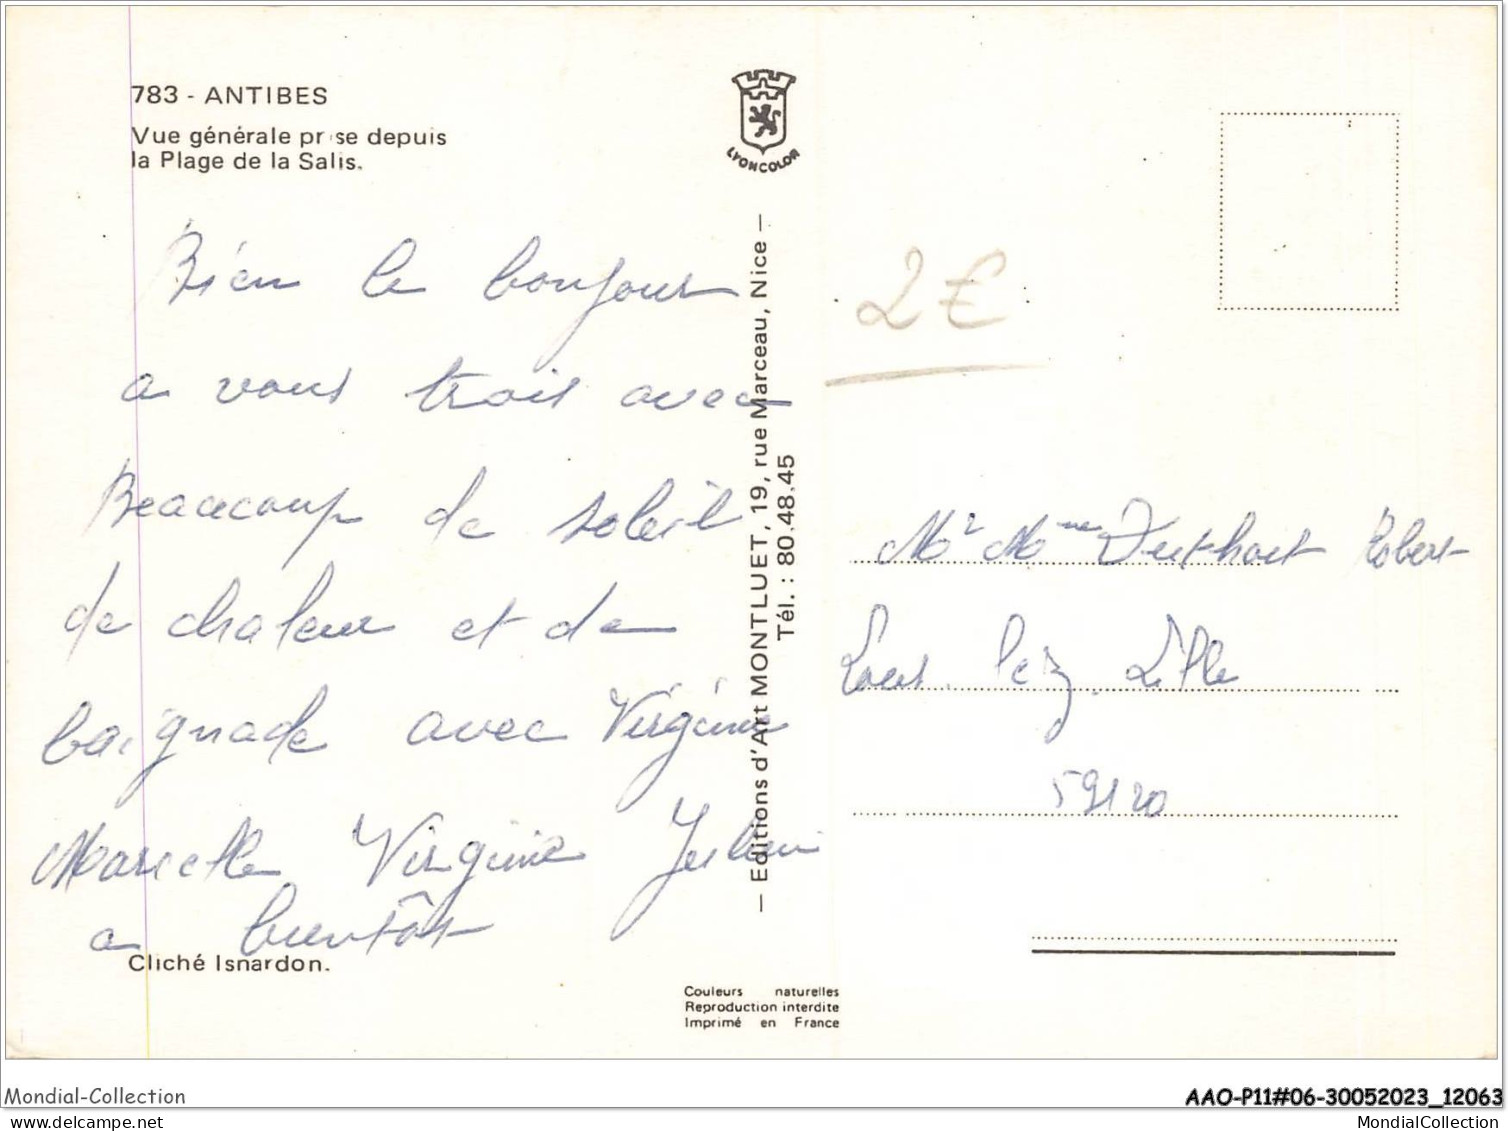 783 - ANTIBES
Vue générale prise depuis
la Plage de la Salis.
LYONCOLOR
Bien le bonjour
a vous trois avec
Beaucoup de soleil
de chaleur et de
baignade avec Virginie
Marcelle Virginie Julien
a bientôt
Cliché Isnardon.
— Editions d'Art MONTLUET, 19, rue Marceau, Nice —
Tél. : 80.48.45
Couleurs naturelles
Reproduction interdite
Imprimé en France
2€
Mr Mme Robert
Loos. Lez. Lille
59120
Mondial-Collection
AAO-P11#06-30052023_12063
MondialCollection